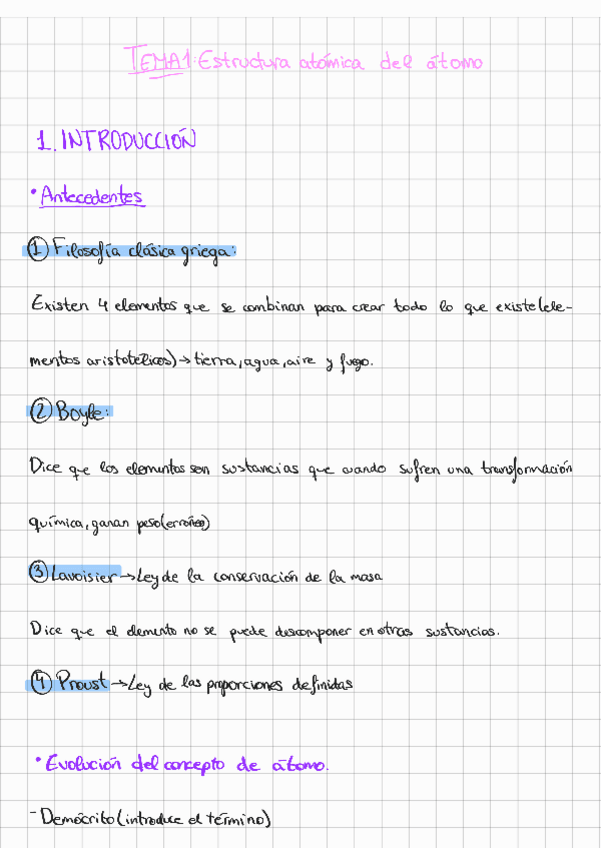 TEMA1: Estructura atómica del átomo
1. INTRODUCCIÓN
• Antecedentes
① Filosofía clásica griega:
Existen 4 elementos que se combinan para crear todo lo que existe(ele-
mentos aristotélicos)→tierra, agua, aire y fuego.
② Boyle:
Dice que los elementos son sustancias que cuando sufren una transformación
química, ganan peso(erróneo)
③ Lavoisier→Ley de la conservación de la masa
Dice que el elemento no se puede descomponer en otras sustancias.
④ Proust→Ley de las proporciones definidas
• Evolución del concepto de átomo.
- Demócrito(introduce el término)